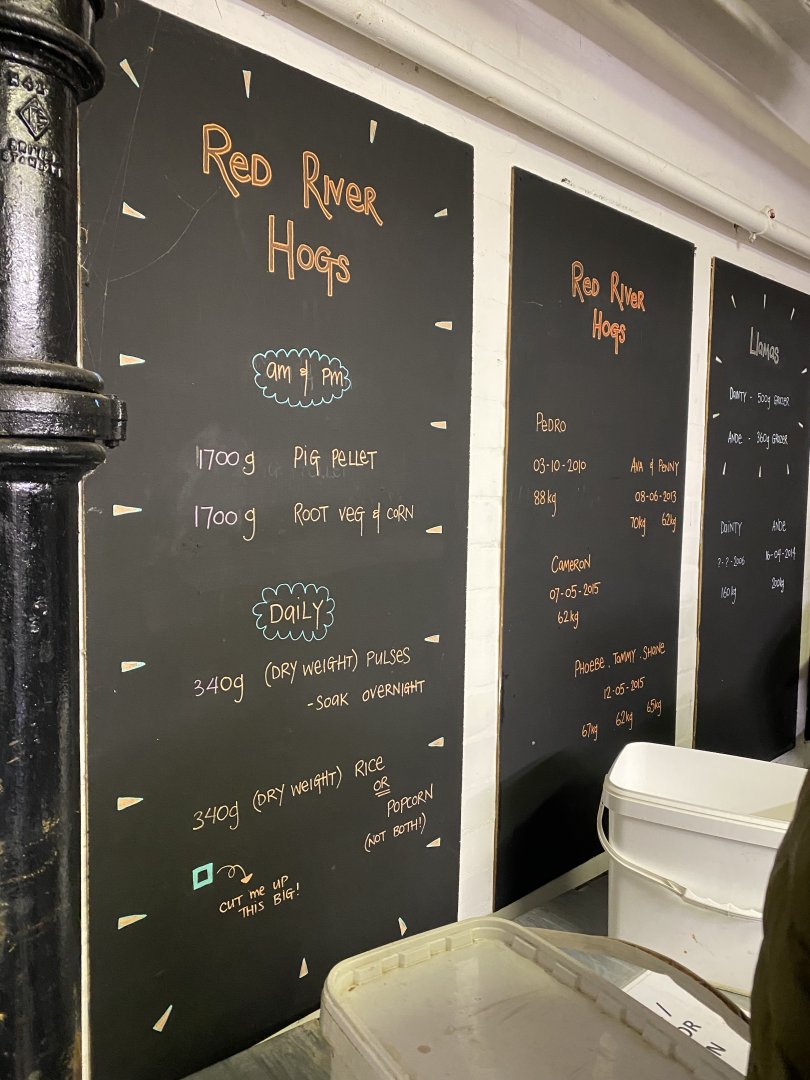 RED RIVER
HOGS
am & pm
1700g PIG PELLET
1700g ROOT VEG & CORN
DAILY
340g (DRY WEIGHT) PULSES
- SOAK OVERNIGHT
340g (DRY WEIGHT) RICE
OR
POPCORN
(NOT BOTH!)
CUT me UP
THIS BIG!
RED RIVER
HOGS
PEDRO
03-10-2010
88kg
AVA & PENNY
08-06-2013
70kg 62kg
CAMERON
07-05-2015
62kg
PHOEBE . TOMMY . SHANE
12-05-2015
67kg 62kg 65kg
Llamas
DAINTY - 500g GRAZER
ANDE - 360g GRAZER
DAINTY
?-?-2006
160kg
ANDE
16-04-2014
200kg